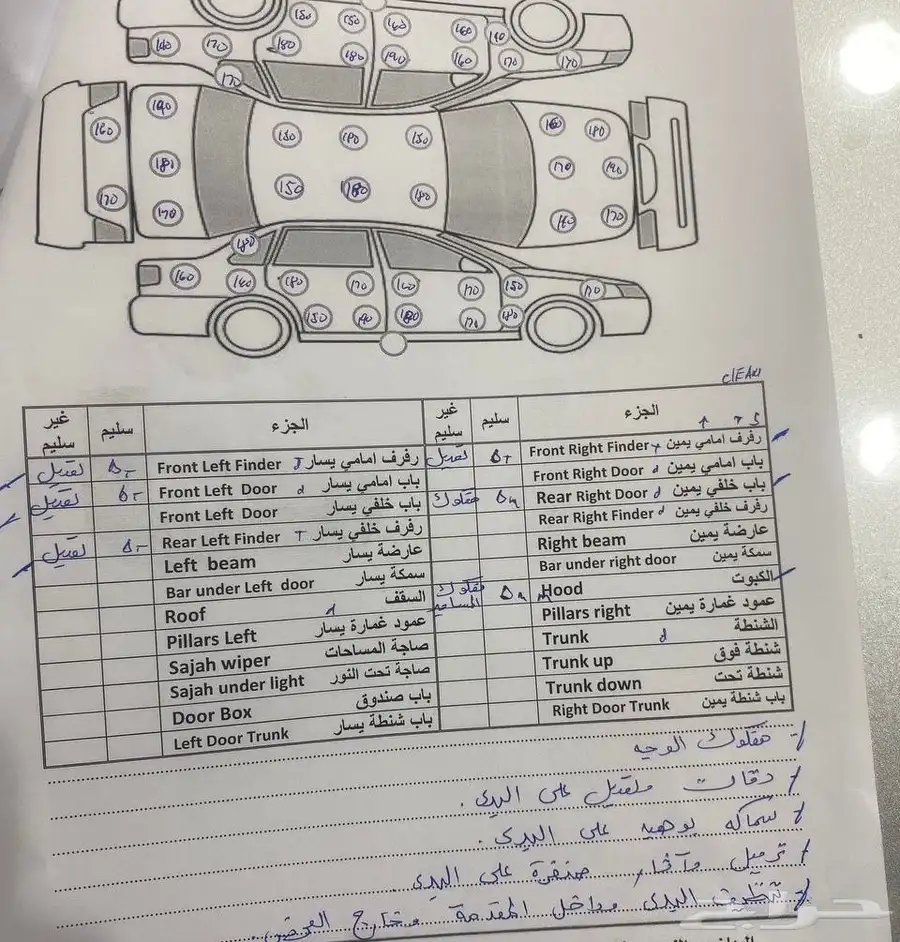 160 170 180 150 150 180 160 190 160 160 190 170 170
170
190 180 170
160 170
150 180 150
150 180 180
160 180
170 190
160 170
180
160 160 180 170 160 170 150 170
150 190 180 170 180
clEAN
غير سليم سليم الجزء غير سليم سليم الجزء
تعديل Front Left Finder رفرف امامي يسار تعديل Front Right Finder رفرف امامي يمين
تعديل Front Left Door باب امامي يسار Front Right Door باب امامي يمين
Front Left Door باب خلفي يسار مفكوك Rear Right Door باب خلفي يمين
تعديل Rear Left Finder رفرف خلفي يسار Rear Right Finder رفرف خلفي يمين
Left beam عارضة يسار Right beam عارضة يمين
Bar under Left door سمكة يسار Bar under right door سمكة يمين
Roof السقف مفكوك المسامير Hood الكبوت
Pillars Left عمود غمارة يسار Pillars right عمود غمارة يمين
Sajah wiper صاجة المساحات Trunk الشنطة
Sajah under light صاجة تحت النور Trunk up شنطة فوق
Door Box باب صندوق Trunk down شنطة تحت
Left Door Trunk باب شنطة يسار Right Door Trunk باب شنطة يمين
/- مفكوك الوجيه
/ دقات وتعديل على البدي .
/ سماكه بوهيه على البدي .
/ ترميل وآثار صنفرة على البدي .
/ تنظيف البدي وداخل المقدمة وخارج
حراج